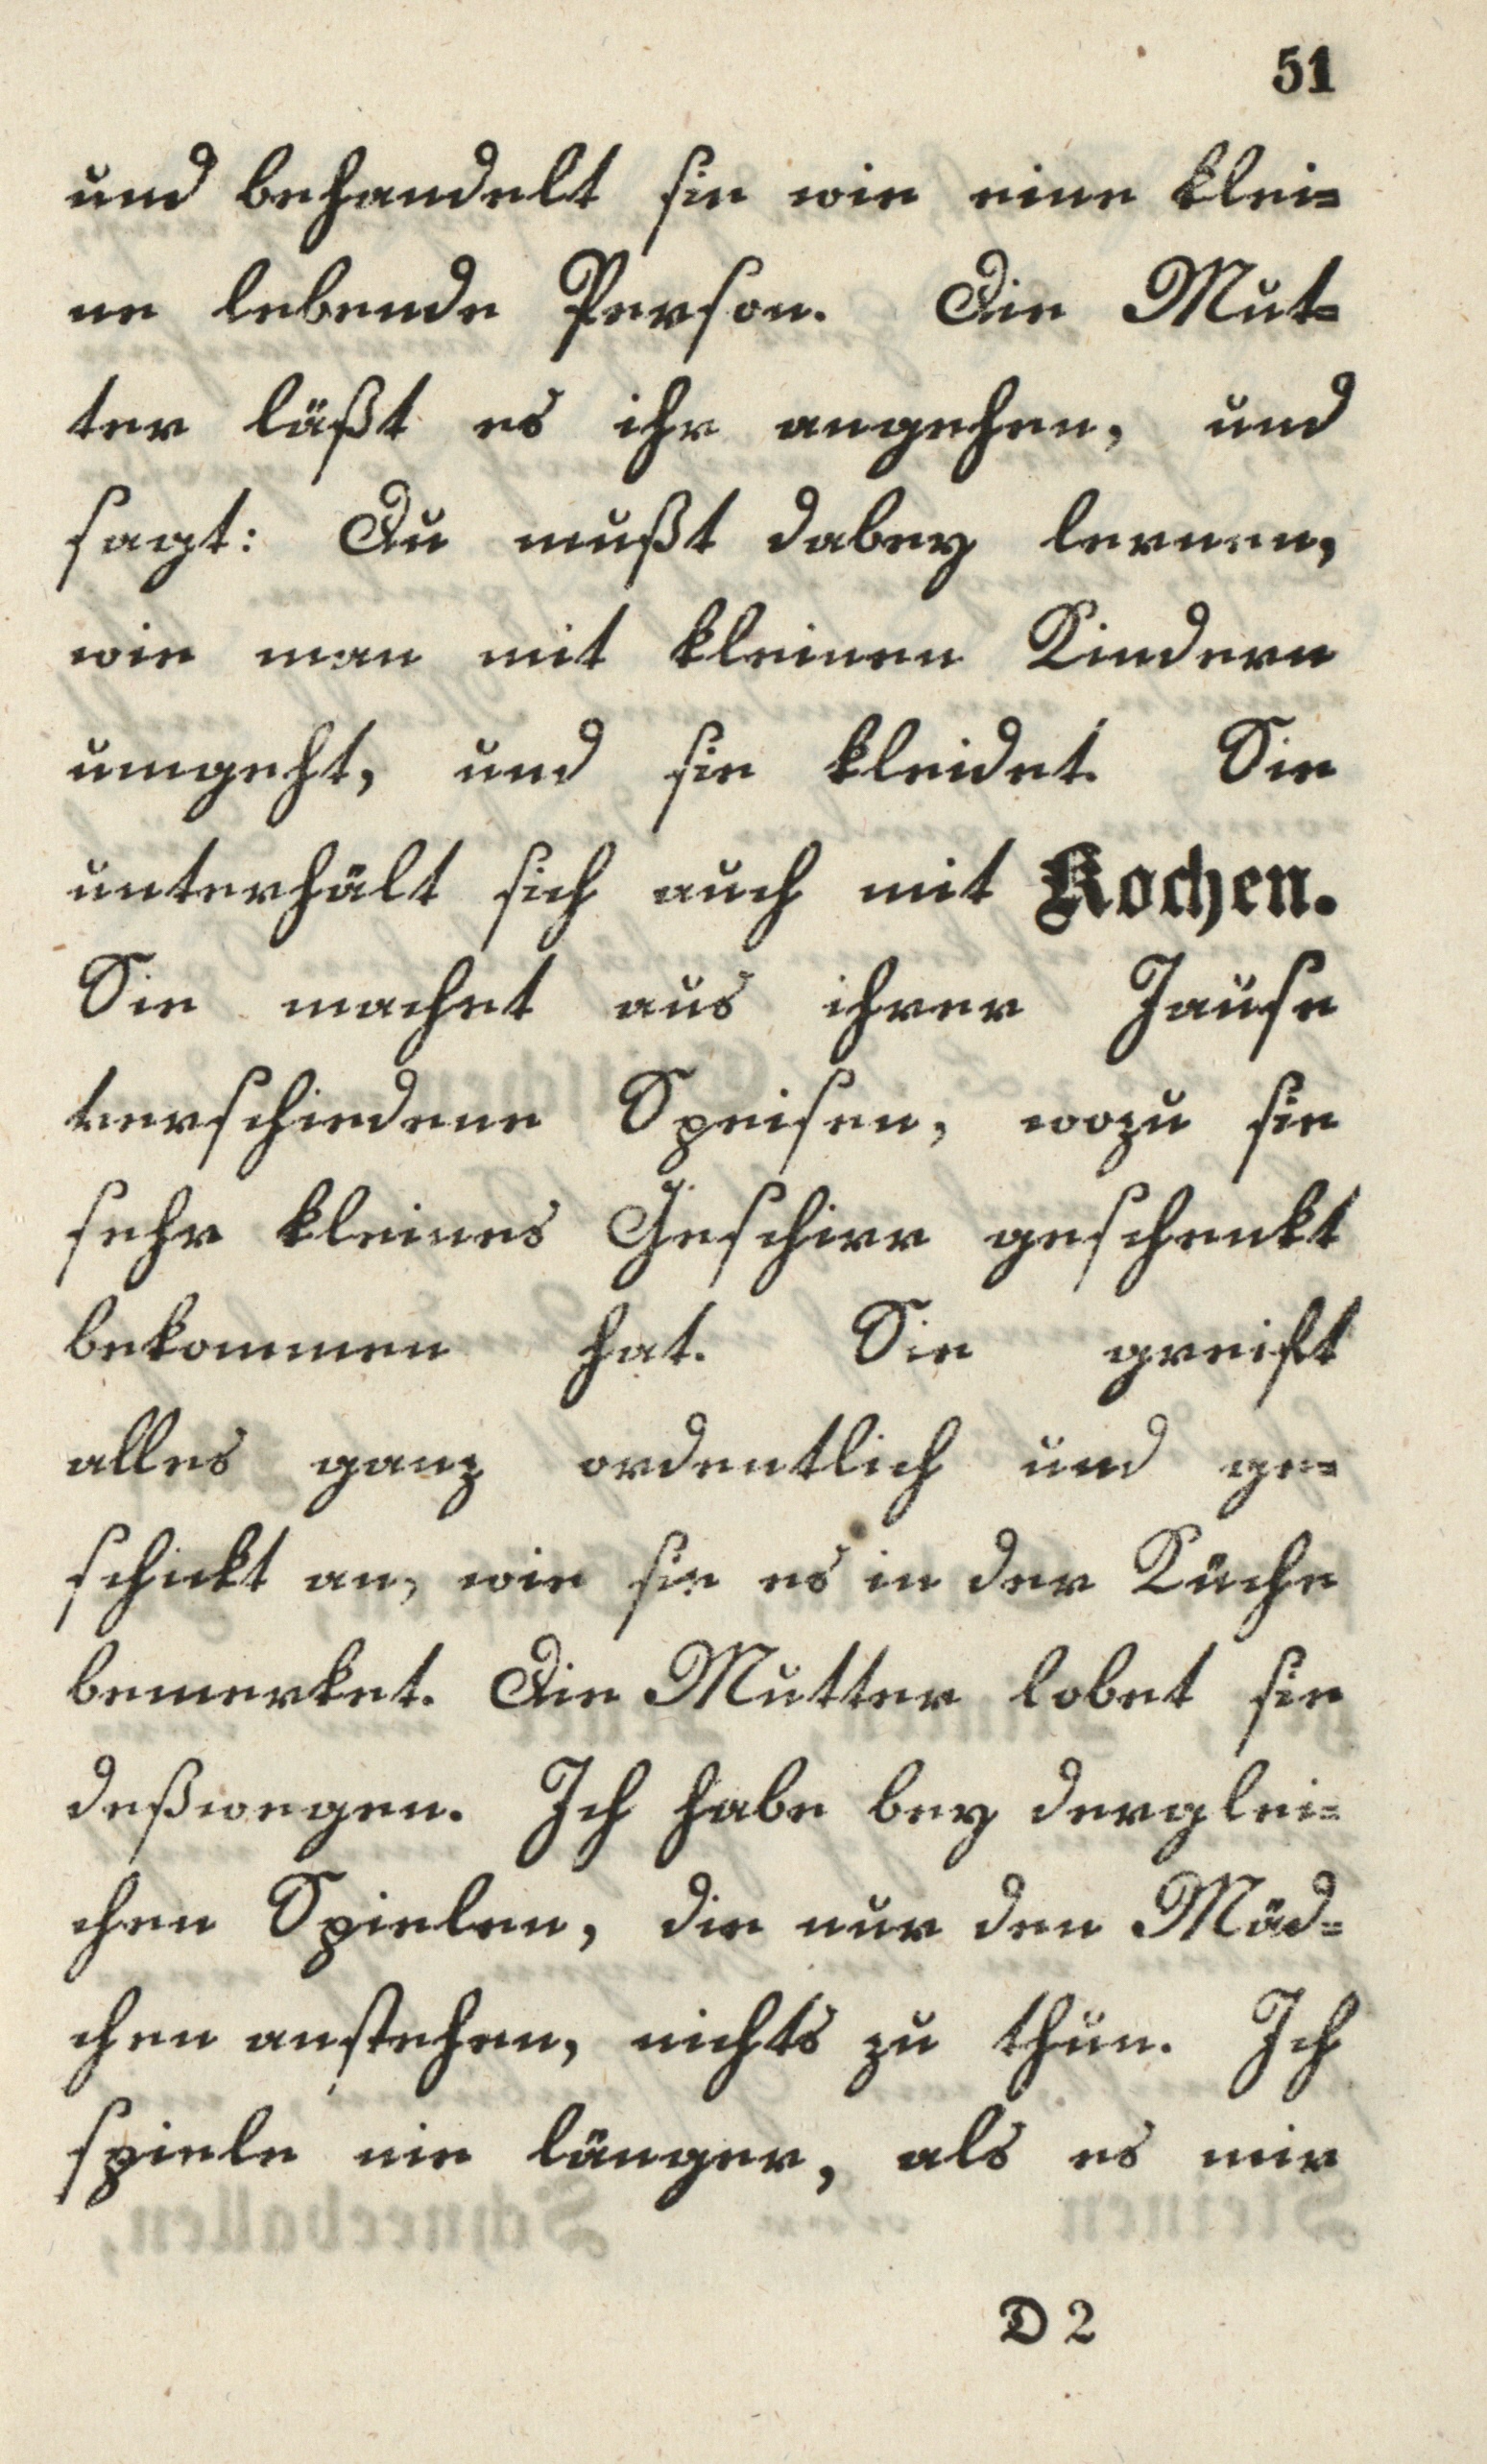 51
und behandelt sie wie eine klei=
ne lebende Person. Die Mut=
ter läßt es ihr angehen, und
sagt: Du mußt dabey lernen,
wie man mit kleinen Kindern
umgeht, und sie kleidet. Sie
unterhält sich auch mit Kochen.
Sie machet aus ihrer Jause
verschiedene Speisen, wozu sie
sehr kleines Geschirr geschenkt
bekommen hat. Sie greift
alles ganz ordentlich und ge=
schickt an, wie sie es in der Küche
bemerket. Die Mutter lobet sie
deßwegen. Ich habe bey derglei=
chen Spielen, die nur den Mäd=
chen anstehen, nichts zu thun. Ich
spiele nie länger, als es mir
D 2